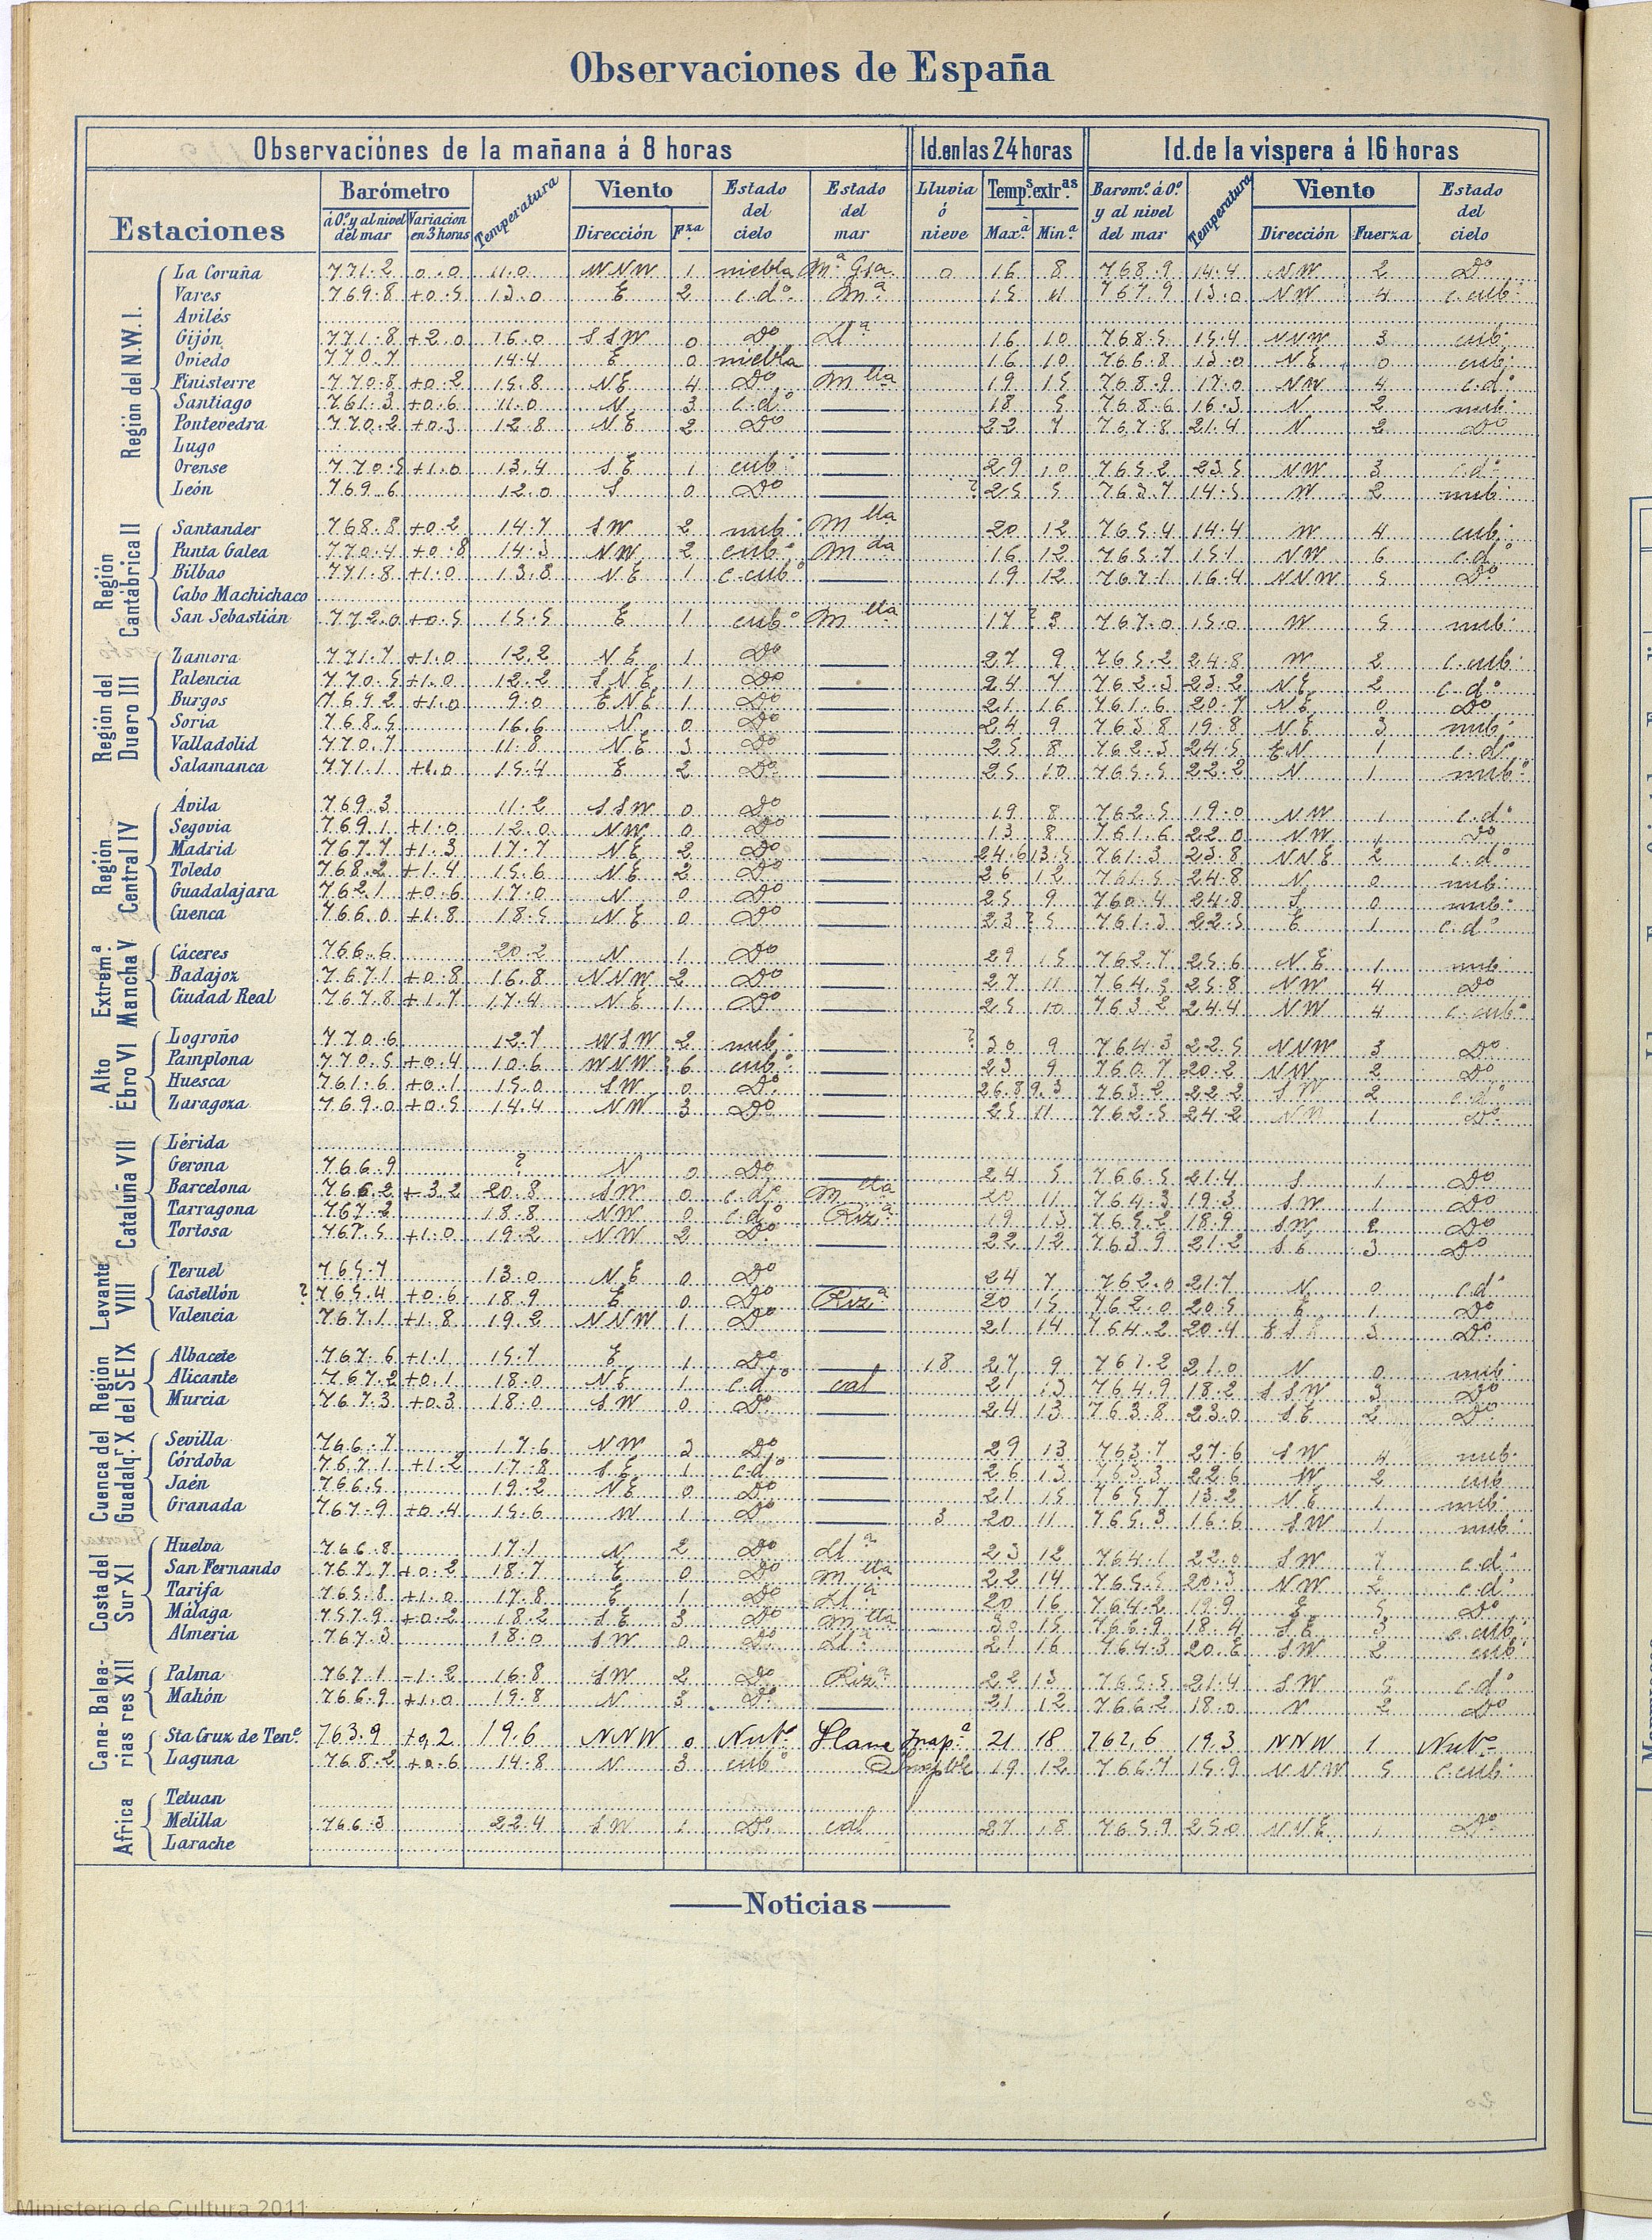 Observaciones de España
Observaciónes de la mañana á 8 horas Id. en las 24 horas Id. de la vispera á 16 horas
Estaciones Barómetro Temperatura Viento Estado del cielo Estado del mar Lluvia ó nieve Temp.s extr.as Barom.o á 0.o y al nivel del mar Temperatura Viento Estado del cielo
á 0.o y al nivel del mar Variacion en 3 horas Dirección F.za Max.a Min.a Dirección Fuerza
Región del N.W. I.
La Coruña 771.2 0.0 11.0 WNW 1 niebla M.a Gsa. 0 16 8 768.9 14.4 NW 2 Do
Vares 769.8 +0.5 13.0 E 2 c.do. Ma. 15 11 767.9 13.0 NW 4 c.cubo
Avilés
Gijón 771.8 +2.0 16.0 SSW 0 Do Lla 16 10 768.5 15.4 NNW 3 cubo
Oviedo 770.7 14.4 E 0 niebla 16 10 766.8 13.0 NE 0 cubo
Finisterre 770.8 +0.2 15.8 NE 4 Do Mlla 19 15 768.9 17.0 NW 4 c.do
Santiago 761.3 +0.6 11.0 N 3 c.do 18 5 768.6 16.3 N 2 nubo
Pontevedra 770.2 +0.3 12.8 NE 2 Do 22 7 767.8 21.4 N 2 Do
Lugo
Orense 770.5 +1.0 13.4 SE 1 cubo 29 10 765.2 23.5 NW 3 c.do
León 769.6 12.0 S 0 Do ? 25 5 763.7 14.5 W 2 nubo
Región Cantábrica II
Santander 768.8 +0.2 14.7 SW 2 nubo Mlla 20 12 765.4 14.4 W 4 cubo
Punta Galea 770.4 +0.8 14.3 NW 2 cubo Mda 16 12 765.7 15.1 NW 6 c.do
Bilbao 771.8 +1.0 13.8 NE 1 c.cubo 19 12 767.1 16.4 NNW 5 Do
Cabo Machichaco
San Sebastián 772.0 +0.5 15.5 E 1 cubo Mlla 17 ? 3 767.0 15.0 W 5 nubo
Región del Duero III
Zamora 771.7 +1.0 12.2 NE 1 Do 27 9 765.2 24.8 W 2 c.cubo
Palencia 770.5 +1.0 12.2 SNE 1 Do 24 7 762.3 23.2 NE 2 c.do
Burgos 769.2 +1.0 9.0 ENE 1 Do 21 16 761.6 20.7 NE 0 Do
Soria 768.5 16.6 N 0 Do 24 9 763.8 19.8 NE 3 nubo
Valladolid 770.7 11.8 NE 3 Do 25 8 762.3 24.5 EN 1 c.do
Salamanca 771.1 +1.0 15.4 E 2 Do 25 10 765.5 22.2 N 1 nubo
Región Central IV
Ávila 769.3 11.2 SSW 0 Do 19 8 762.5 19.0 NW 1 c.do
Segovia 769.1 +1.0 12.0 NW 0 Do 13 8 761.6 22.0 NW 1 Do
Madrid 767.7 +1.3 17.7 NE 2 Do 24.6 13.5 761.3 23.8 NNE 2 c.do
Toledo 768.2 +1.4 15.6 NE 2 Do 26 12 761.5 24.8 N 0 nubo
Guadalajara 762.1 +0.6 17.0 N 0 Do 25 9 760.4 24.8 S 0 nubo
Cuenca 766.0 +1.8 18.5 NE 0 Do 23 ? 5 761.3 22.5 E 1 c.do
Extrem.a Mancha V
Cáceres 766.6 20.2 N 1 Do 29 15 762.7 25.6 NE 1 nubo
Badajoz 767.1 +0.8 16.8 NNW 2 Do 27 11 764.5 25.8 NW 4 Do
Ciudad Real 767.8 +1.7 17.4 NE 1 Do 25 10 763.2 24.4 NW 4 c.cubo
Alto Ébro VI
Logroño 770.6 12.7 WSW 2 nubo ? 30 9 764.3 22.5 NNW 3 Do
Pamplona 770.5 +0.4 10.6 WNW 6 cubo 23 9 760.7 20.2 NW 2 Do
Huesca 761.6 +0.1 15.0 SW 0 Do 26.8 9.3 763.2 22.2 SW 2 c.do
Zaragoza 769.0 +0.5 14.4 NW 3 Do 25 11 762.5 24.2 NW 1 Do
Cataluña VII
Lérida
Gerona 766.9 ? N 0 Do 24 5 766.5 21.4 S 1 Do
Barcelona 766.2 +3.2 20.8 SW 0 c.do Mlla 20 11 764.3 19.3 SW 1 Do
Tarragona 767.2 18.8 NW 0 c.do Riza 19 13 765.2 18.9 SW Do
Tortosa 767.5 +1.0 19.2 NW 2 Do 22 12 763.9 21.2 SE 3 Do
Levante VIII
Teruel 765.7 13.0 NE 0 Do 24 7 762.0 21.7 N 0 c.do
Castellón ? 765.4 +0.6 18.9 E 0 Do Riza 20 15 762.0 20.5 E 1 Do
Valencia 767.1 +1.8 19.2 NNW 1 Do 21 14 764.2 20.4 3 Do
Región del SE IX
Albacete 767.6 +1.1 15.7 E 1 Do 18 27 9 761.2 21.0 N 0 nubo
Alicante 767.2 +0.1 18.0 NE 1 c.do cal 21 13 764.9 18.2 SSW 3 Do
Murcia 767.3 +0.3 18.0 SW 0 Do 24 13 763.8 23.0 SE 2 Do
Cuenca del Guadalq.r X
Sevilla 766.7 17.6 NW 2 Do 29 13 763.7 27.6 SW 4 nubo
Córdoba 767.1 +1.2 17.8 SE 1 c.do 26 13 763.3 22.6 W 2 cub
Jaén 766.5 19.2 NE 0 Do 21 15 765.7 13.2 NE 1 nubo
Granada 767.9 +0.4 15.6 W 1 Do 3 20 11 765.3 16.6 SW 1 nubo
Costa del Sur XI
Huelva 766.8 17.1 N 2 Do Lla 23 12 764.1 22.0 SW 7 c.do
San Fernando 767.7 +0.2 18.7 E 0 Do Mlla 22 14 765.5 20.3 NW 2 c.do
Tarifa 765.8 +1.0 17.8 E 1 Do Lla 20 16 764.2 19.9 E 5 Do
Málaga 757.9 +0.2 18.2 SE 3 Do Mlla 30 15 766.9 18.4 SE 3 c.cubo
Almeria 767.3 18.0 SW 0 Do Lla 21 16 764.3 SW 2 cubo
Cana- Balea- rias res XII
Palma 767.1 -1.2 16.8 SW 2 Do Riza 22 13 765.5 21.4 SW 5 c.do
Mahón 766.9 +1.0 19.8 N 3 Do 21 12 766.2 18.0 N 2 Do
Sta Cruz de Ten.e 763.9 +0,2 19.6 NNW 0 Nubo Llana Inap.a 21 18 762,6 19.3 NNW 1 Nubo
Laguna 768.2 +0.6 14.8 N 3 cubo 19 12 766.7 15.9 NNW 5 c.cubo
Africa
Tetuan
Melilla 766.3 22.4 SW 1 Do cal 27 18 765.9 25.0 NNE 1 Do
Larache
Noticias
Ministerio de Cultura 2011